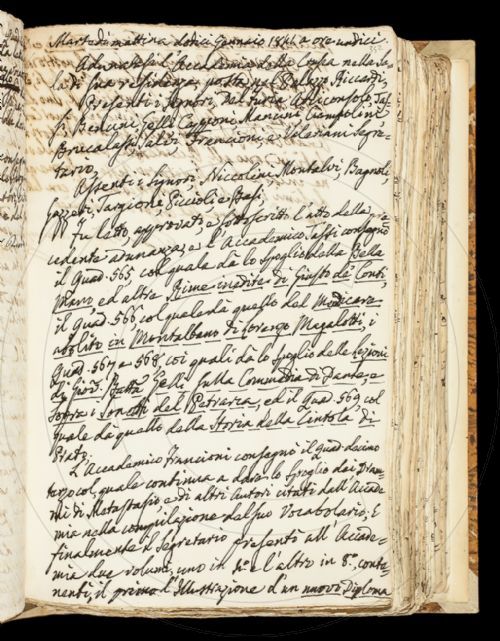 Martedì mattina dodici Gennaio 1841 a ore undici
Adunatasi l'Accademia della Crusca nella Sa-
la di sua residenza posta nel Palazzo Riccardi,
Presenti i Signori, Del Furia Arciconsolo, Tas-
si Bencini, Gelli Capponi Mancini, Ciampolini,
Brucalassi, Salvi, Francioni, e Valeriani Segre-
tario,
Assenti i Signori, Niccolini, Montalvi, Bagnoli,
Gazzeri, Targioni, Puccioli e Basi,
Fu letto approvato, e sottoscritto l'atto della pre-
cedente adunanza, e l'Accademico Tassi consegnò
il Quad. 565 col quale dà lo spoglio della Bella
Mano, ed altre Rime inedite di Giusto de' Conti,
il Quad. 566, col quale dà quello del Medicare
abolito in Montalbano di Lorenzo Magalotti, i
Quad. 567 e 568 coi quali dà lo spoglio delle Lezioni
di Giov. Batta Gelli sulla Commedia di Dante, e
sopra i Sonetti del Petrarca, ed il Quad. 569 col
quale dà quello della Storia della Cintola di
Prato.
L'Accademico Francioni consegnò il Quad. decimo
terzo col quale continua a dare lo spoglio dei Dram-
mi di Metastasio e di altri Autori citati dall'Accade-
mia nella compilazione del suo Vocabolario. E
finalmente il Segretario presentò all'Accade-
mia due volumi, uno in 4º e l'altro in 8º, conte-
nenti, il primo l'Illustrazione d'un nuovo Diploma